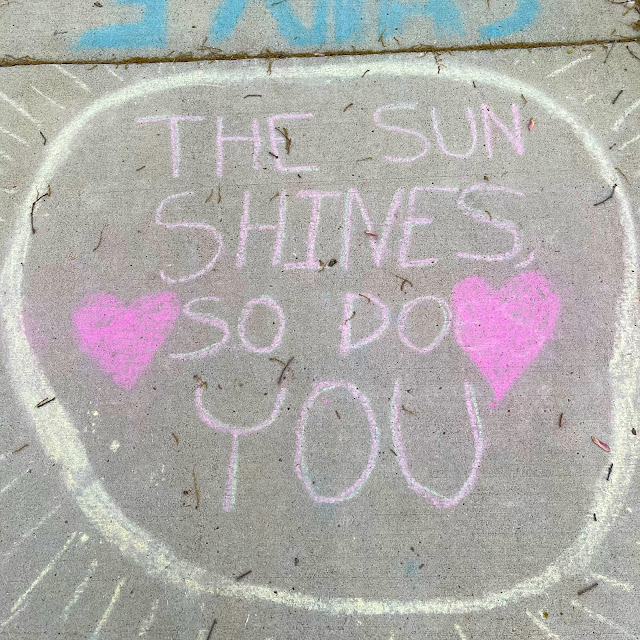 THE SUN
SHINES,
SO DO
YOU